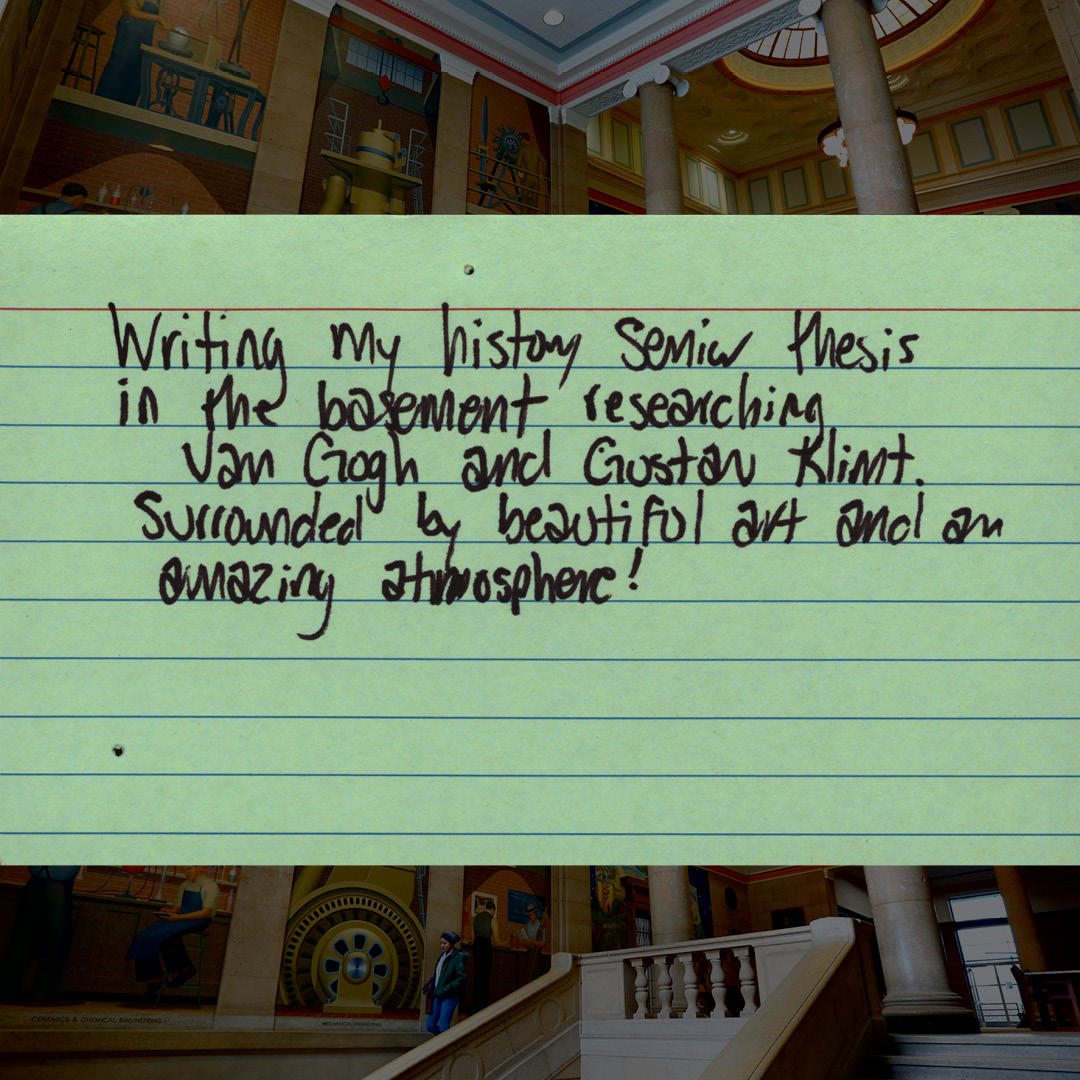 Writing my history senior thesis
in the basement researching
Van Gogh and Gustav Klimt.
Surrounded by beautiful art and an
amazing atmosphere!
CERAMICS & CHEMICAL ENGINEERING
MECHANICAL ENGINEERING